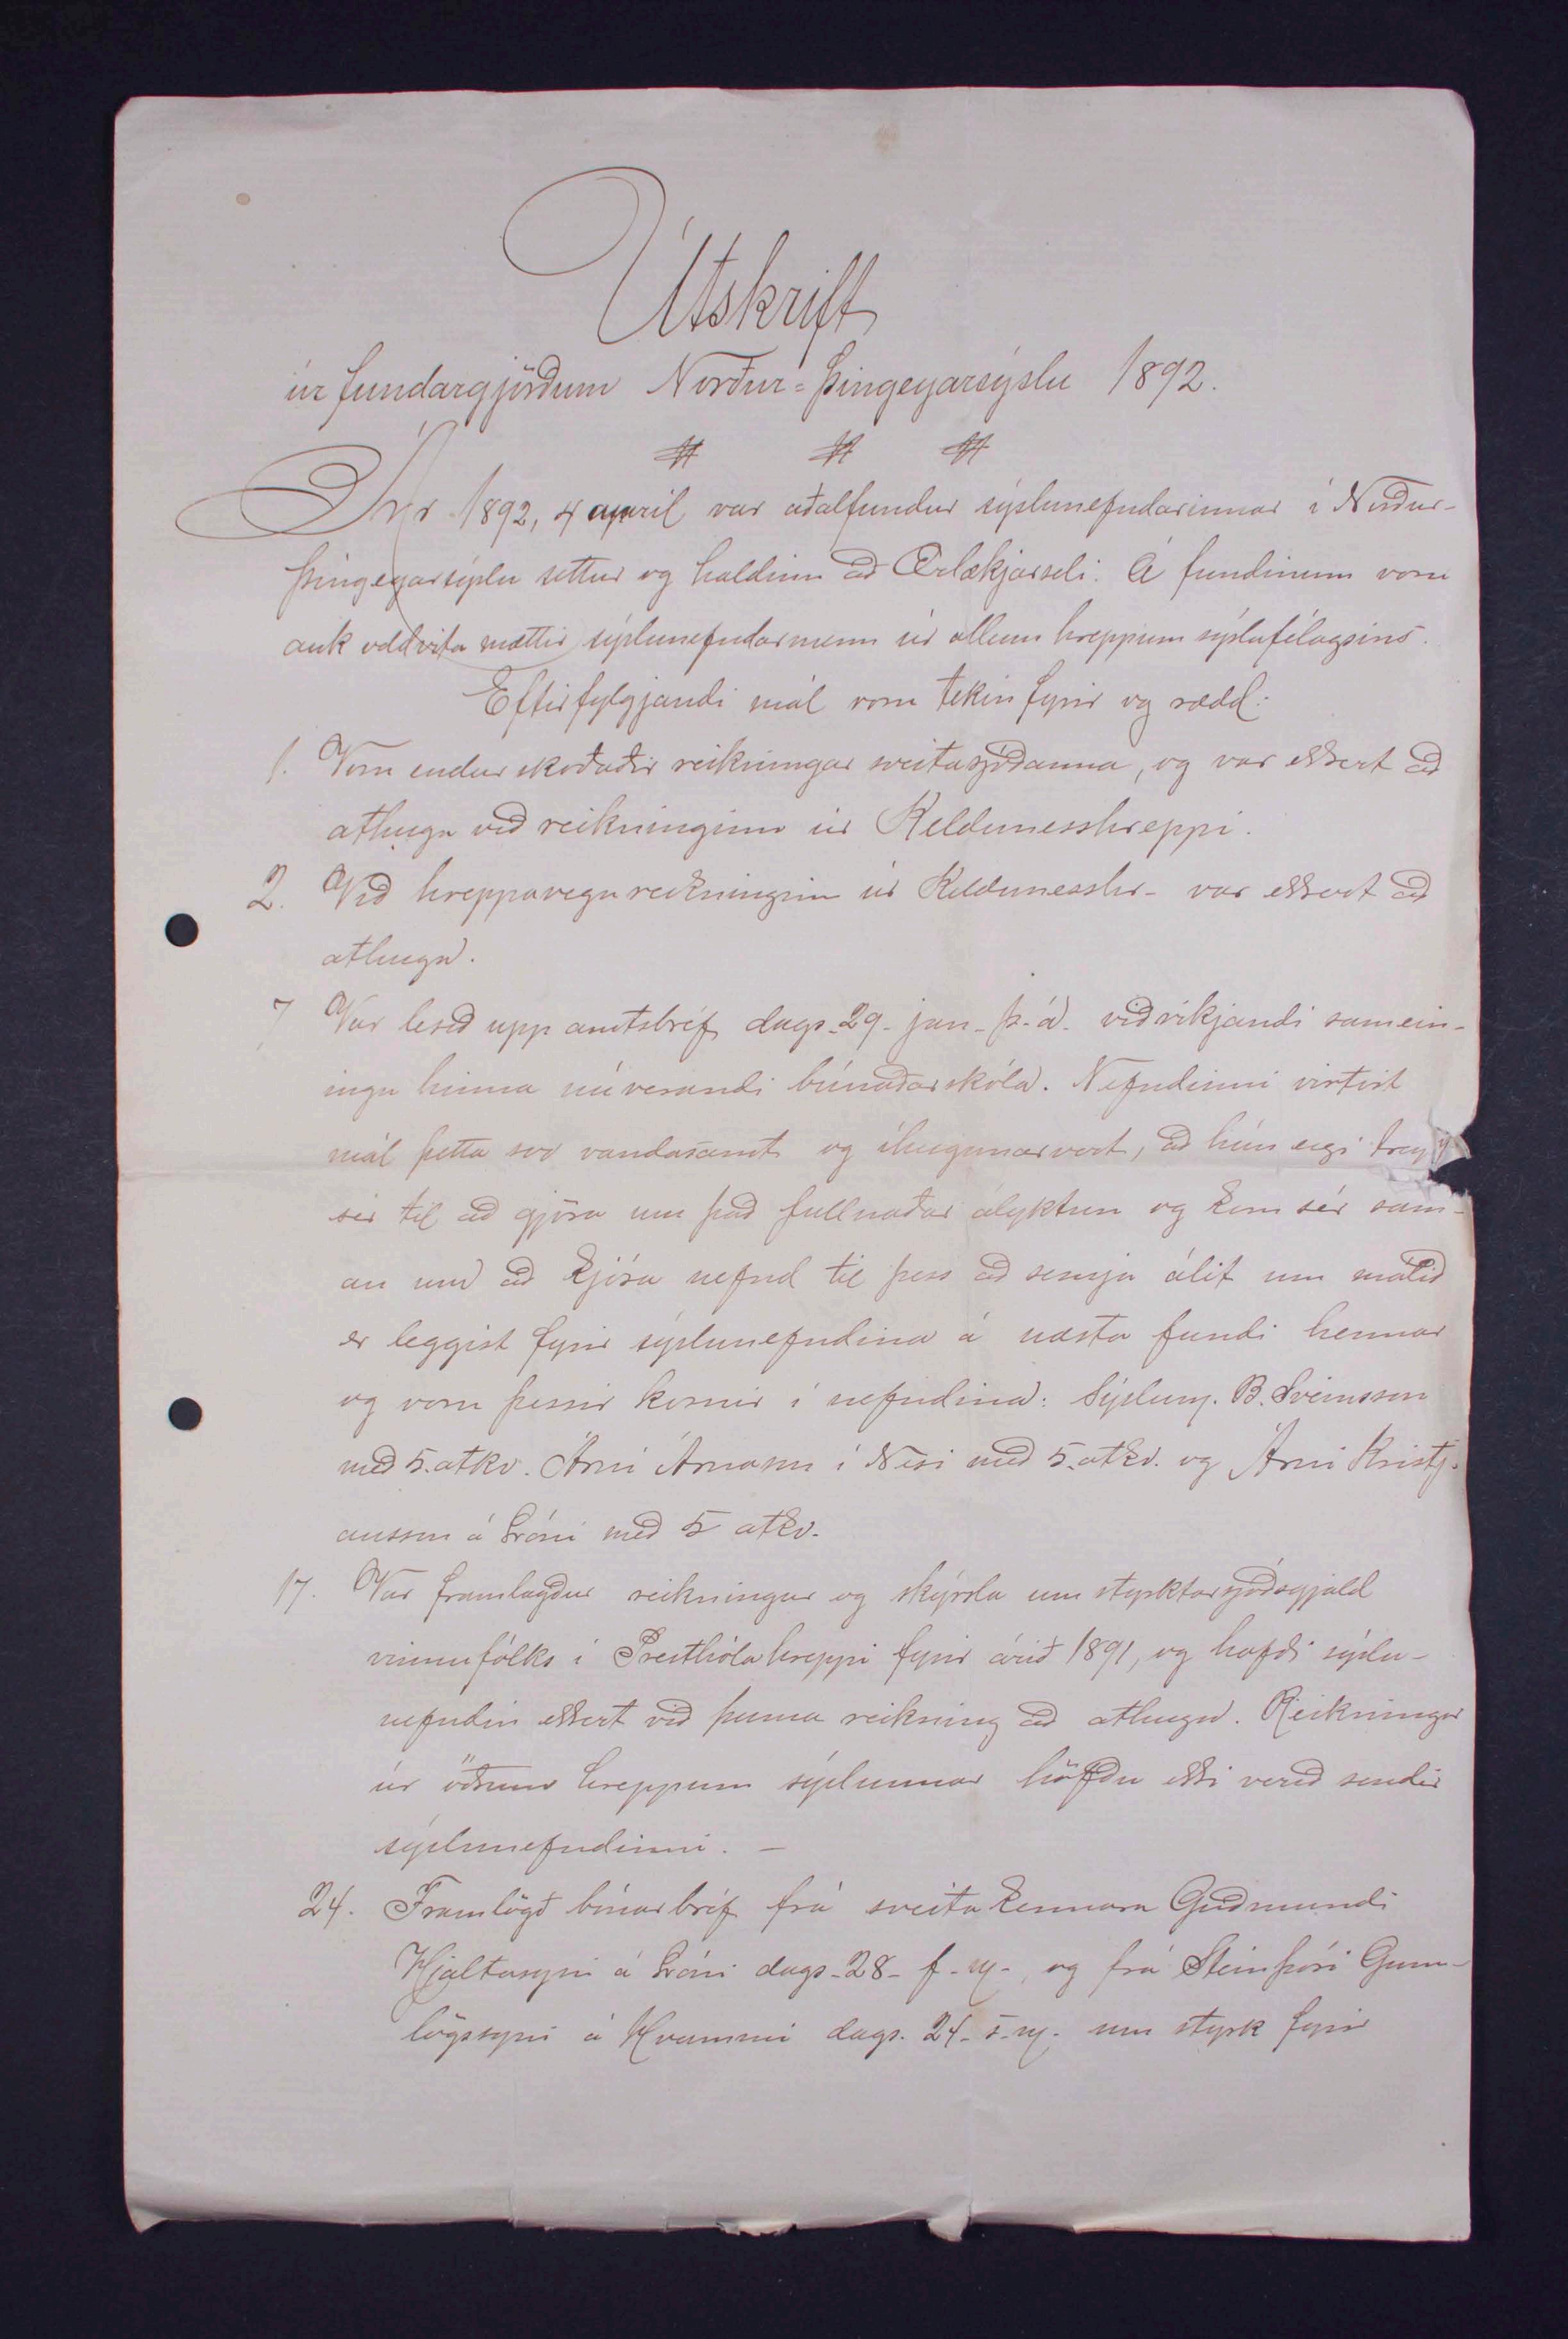 Útskrift
úr fundargjörðum Norður-Þingeyarsýslu 1892.
Ár 1892, 4 apríl var aðalfundur sýslunefndarinnar í Norður-
Þingeyarsýslu settur og haldinn að Ærlækjarseli. Á fundinum voru
auk oddvita mættir sýslunefndarmenn úr öllum hreppum sýslufélagsins.
Eftirfylgjandi mál voru tekin fyrir og rædd:
1. Voru endurskoðaðir reikningar sveitasjóðanna, og var ekkert að
athuga við reikninginn úr Keldunesshreppi.
2. Við hreppavegareikninginn úr Keldunesshr- var ekkert að
athuga.
7 Var lesið upp amtsbréf dags. 29. jan. þ. á. viðvíkjandi samein-
ingu hinna núverandi búnaðarskóla. Nefndinni virtist
mál þetta svo vandasamt og íhugunarvert, að hún eigi treysti
sér til að gjöra um það fullnaðar ályktun og kom sér sam-
an um að kjósa nefnd til þess að semja álit um málið
er leggist fyrir sýslunefndina á næsta fundi hennar
og voru þessir kosnir í nefndina: Sýslum. B. Sveinsson
með 5. atkv. Árni Árnason í Nesi með 5. atkv. og Árni Kristj-
ánsson á Lóni með 5 atkv.
17. Var framlagður reikningur og skýrsla um styrktarsjóðsgjald
vinnufólks í Presthólahreppi fyrir árið 1891, og hafði sýslu-
nefndin ekkert við þenna reikning að athuga. Reikningar
úr öðrum hreppum sýslunnar höfðu ekki verið sendir
sýslunefndinni. –
24. Framlögð bónarbréf frá sveitakennara Guðmundi
Hjaltasyni á Lóni dags. 28. f. m., og frá Steinþóri Gunn-
lögssyni á Hvammi dags. 24. s. m. um styrk fyrir